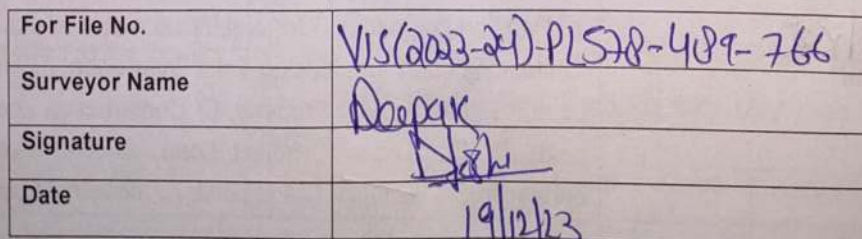 For File No. VIS(2023-24)-PL578-489-766
Surveyor Name Deepak
Signature
Date 19/12/23